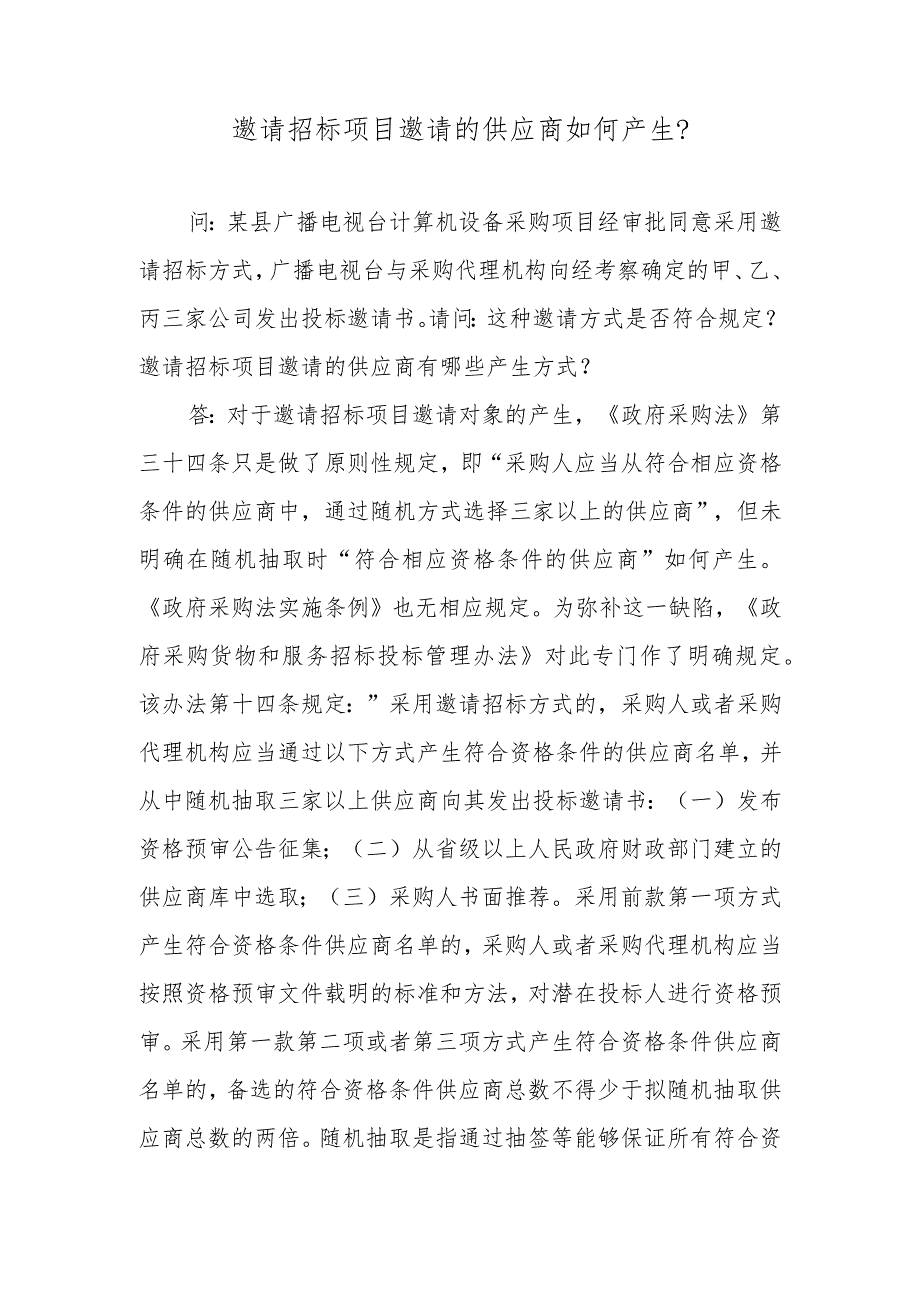 邀请招标项目邀请的供应商如何产生?
问：某县广播电视台计算机设备采购项目经审批同意采用邀
请招标方式，广播电视台与采购代理机构向经考察确定的甲、乙、
丙三家公司发出投标邀请书。请问：这种邀请方式是否符合规定？
邀请招标项目邀请的供应商有哪些产生方式？
答：对于邀请招标项目邀请对象的产生，《政府采购法》第
三十四条只是做了原则性规定，即“采购人应当从符合相应资格
条件的供应商中，通过随机方式选择三家以上的供应商”，但未
明确在随机抽取时“符合相应资格条件的供应商”如何产生。
《政府采购法实施条例》也无相应规定。为弥补这一缺陷，《政
府采购货物和服务招标投标管理办法》对此专门作了明确规定。
该办法第十四条规定：”采用邀请招标方式的，采购人或者采购
代理机构应当通过以下方式产生符合资格条件的供应商名单，并
从中随机抽取三家以上供应商向其发出投标邀请书：（一）发布
资格预审公告征集；（二）从省级以上人民政府财政部门建立的
供应商库中选取；（三）采购人书面推荐。采用前款第一项方式
产生符合资格条件供应商名单的，采购人或者采购代理机构应当
按照资格预审文件载明的标准和方法，对潜在投标人进行资格预
审。采用第一款第二项或者第三项方式产生符合资格条件供应商
名单的，备选的符合资格条件供应商总数不得少于拟随机抽取供
应商总数的两倍。随机抽取是指通过抽签等能够保证所有符合资